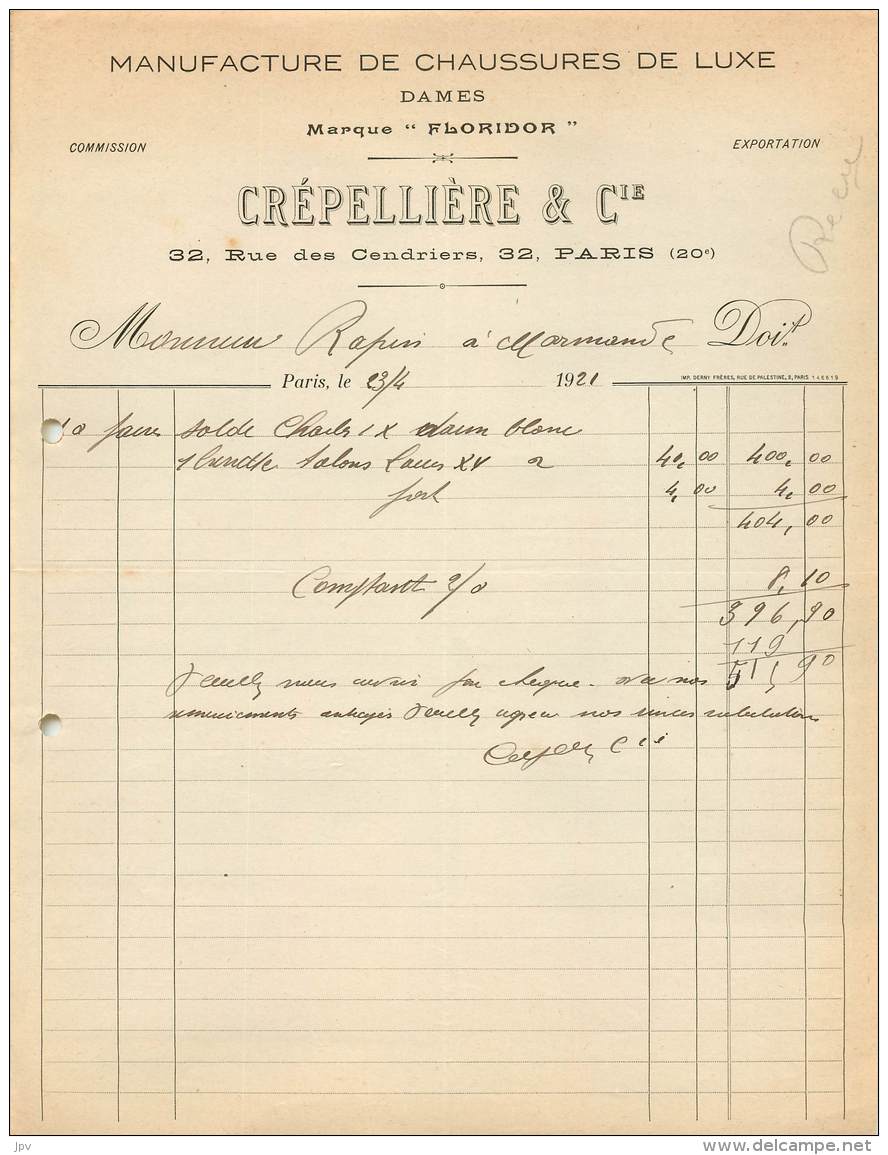 MANUFACTURE DE CHAUSSURES DE LUXE
DAMES
Marque “ FLORIDOR ”
COMMISSION
EXPORTATION
CRÉPELLIÈRE & CIE
32, Rue des Cendriers, 32, PARIS (20e)
Monsieur Rapin à Marmande Doit
Paris, le 23/4 1921
IMP. DERNY FRÈRES, RUE DE PALESTINE, 2, PARIS 146619
10 paires solde Charles IX daim blanc
1 bride talons Louis XV 40,00 400,00
port 4,00 4,00
404,00
Comptant 2/0 8,10
396,90
119
90
Veuillez nous par cheque. nos
remerciements anticipés Veuillez agréer nos sincères salutations
Cie
jpv
www.delcampe.net